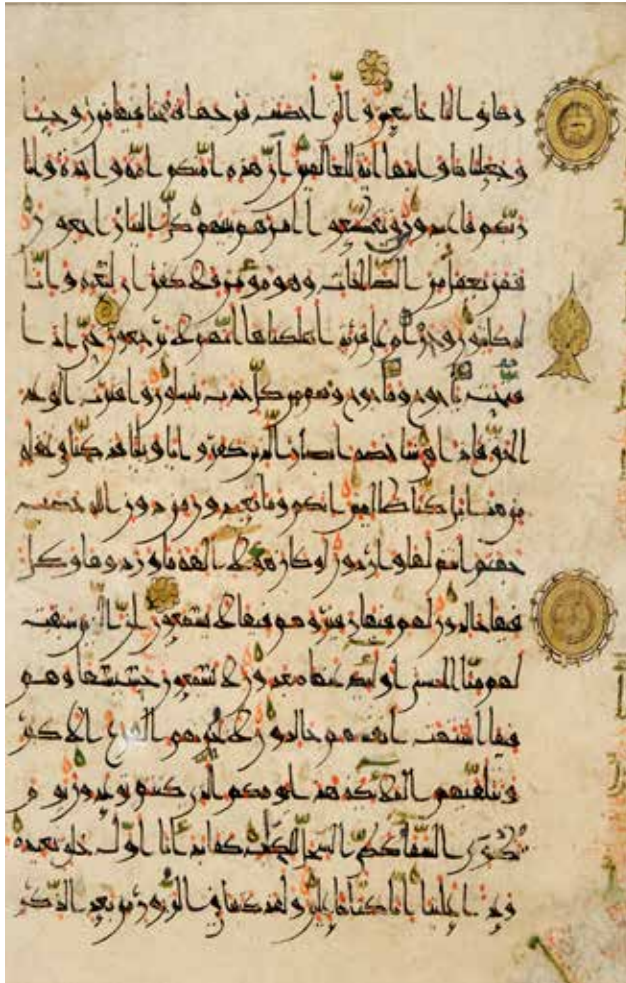 وكانوا لنا خاشعين والتي احصنت فرجها فنفخنا فيها من روحنا
وجعلناها وابنها آية للعالمين إن هذه امتكم امة واحدة وانا
ربكم فاعبدون وتقطعوا امرهم بينهم كل الينا راجعون
فمن يعمل من الصالحات وهو مؤمن فلا كفران لسعيه وانا
له كاتبون وحرام على قرية اهلكناها انهم لا يرجعون حتى اذا
فتحت يأجوج ومأجوج وهم من كل حدب ينسلون واقترب الوعد
الحق فاذا هي شاخصة ابصار الذين كفروا يا ويلنا قد كنا في غفلة
من هذا بل كنا ظالمين انكم وما تعبدون من دون الله حصب
جهنم انتم لها واردون لو كان هؤلاء آلهة ما وردوها وكل
فيها خالدون لهم فيها زفير وهم فيها لا يسمعون إن الذين سبقت
لهم منا الحسنى اولئك عنها مبعدون لا يسمعون حسيسها وهم
فيما اشتهت انفسهم خالدون لا يحزنهم الفزع الاكبر
وتتلقيهم الملائكة هذا يومكم الذي كنتم توعدون يوم
نطوي السماء كطي السجل للكتب كما بدأنا اول خلق نعيده
وعدا علينا انا كنا فاعلين ولقد كتبنا في الزبور من بعد الذكر